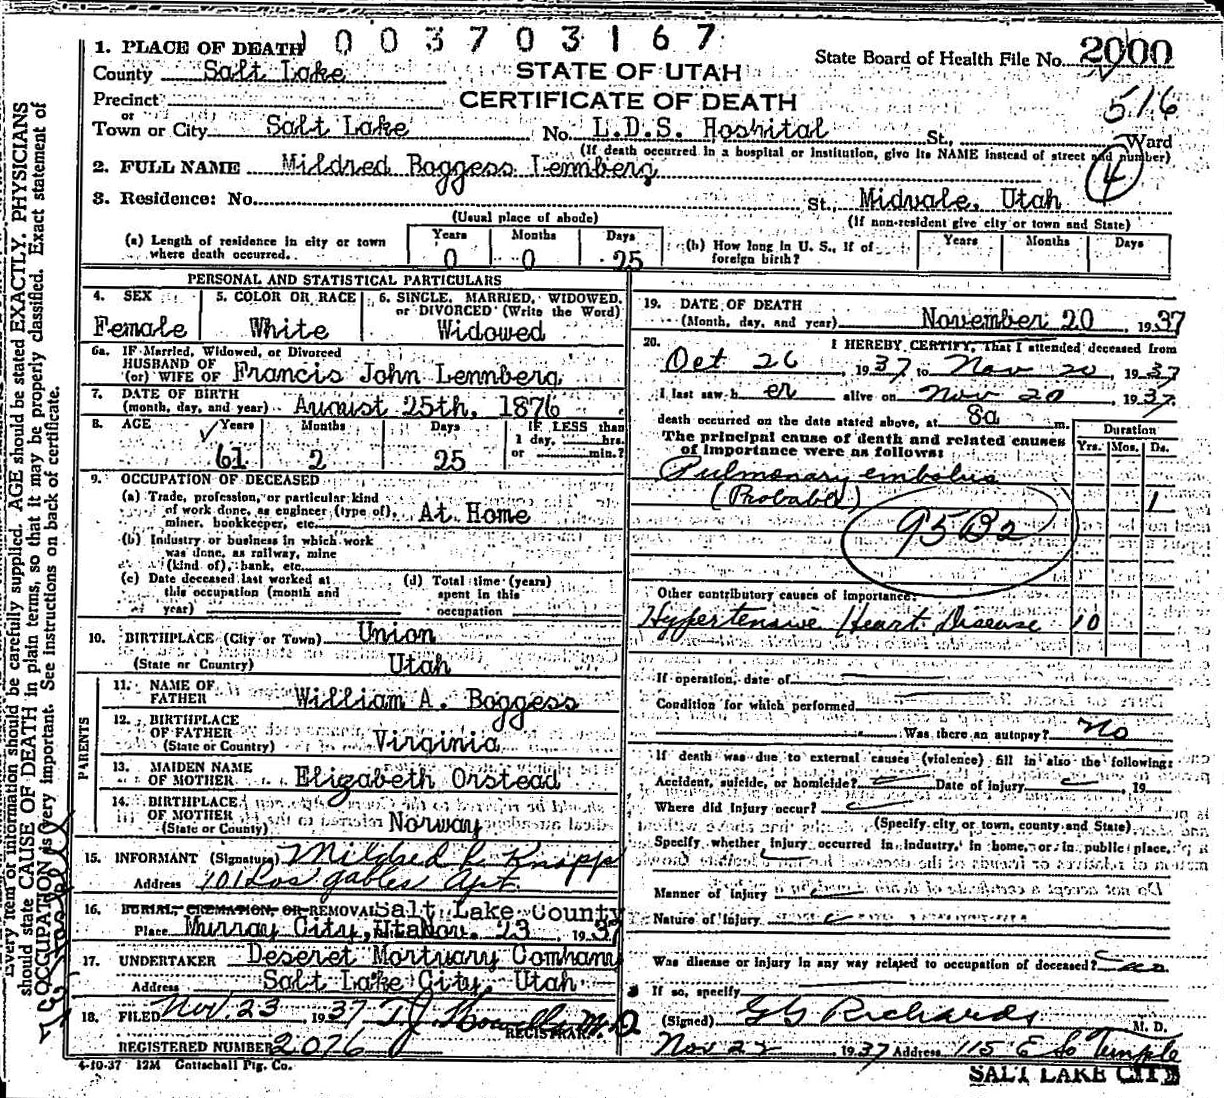 1 0 0 3 7 0 3 1 6 7
1. PLACE OF DEATH
State Board of Health File No. 2000
County Salt Lake
STATE OF UTAH
516
Precinct
CERTIFICATE OF DEATH
or
Town or City Salt Lake No. L.D.S. Hospital St., Ward
(If death occurred in a hospital or institution, give its NAME instead of street and number)
2. FULL NAME Mildred Boggess Lennberg
4
3. Residence: No. St., Midvale, Utah
(Usual place of abode) (If non-resident give city or town and State)
(a) Length of residence in city or town where death occurred. Years 0 Months 0 Days 25
(b) How long in U. S., if of foreign birth? Years Months Days
PERSONAL AND STATISTICAL PARTICULARS
4. SEX Female
5. COLOR OR RACE White
6. SINGLE, MARRIED, WIDOWED, or DIVORCED (Write the Word) Widowed
6a. IF Married, Widowed, or Divorced
HUSBAND OF
(or) WIFE OF Francis John Lennberg
7. DATE OF BIRTH
(month, day, and year) August 25th, 1876
8. AGE Years 61 Months 2 Days 25
IF LESS than
1 day, hrs.
or min.?
9. OCCUPATION OF DECEASED
(a) Trade, profession, or particular kind
of work done, as engineer (type of), At Home
miner, bookkeeper, etc.
(b) Industry or business in which work
was done, as railway, mine
(kind of), bank, etc.
(c) Date deceased last worked at
this occupation (month and
year)
(d) Total time (years)
spent in this
occupation
10. BIRTHPLACE (City or Town) Union
(State or Country) Utah
PARENTS
11. NAME OF
FATHER William A. Boggess
12. BIRTHPLACE
OF FATHER
(State or Country) Virginia
13. MAIDEN NAME
OF MOTHER Elizabeth Orstead
14. BIRTHPLACE
OF MOTHER
(State or Country) Norway
15. INFORMANT (Signature) Mildred L Knapp
Address 101 Los gables Apt.
16. BURIAL, CREMATION, OR REMOVAL Salt Lake County
Place Murray City, Utah Nov. 23, 1937
17. UNDERTAKER Deseret Mortuary Company
Address Salt Lake City, Utah
18. FILED Nov. 23 1937 T.J. Howells M.D.
REGISTRAR.
REGISTERED NUMBER 2076
4-10-37 12M Gottschall Ptg. Co.
19. DATE OF DEATH
(Month, day, and year) November 20, 1937
20. I HEREBY CERTIFY, That I attended deceased from
Oct 26, 1937 to Nov 20, 1937
I last saw h er alive on Nov 20, 1937,
death occurred on the date stated above, at 8a m.
The principal cause of death and related causes
of importance were as follows:
Duration
Yrs. Mos. Ds.
Pulmonary embolus
(Probable) 1
95B2
Other contributory causes of importance:
Hypertensive Heart Disease 10
If operation, date of
Condition for which performed
Was there an autopsy? No
If death was due to external causes (violence) fill in also the following:
Accident, suicide, or homicide? Date of injury, 19
Where did injury occur?
(Specify city or town, county and State)
Specify whether injury occurred in industry, in home, or in public place.
Manner of injury
Nature of injury
Was disease or injury in any way related to occupation of deceased? no
If so, specify
(Signed) G G Richards M. D.
Nov 22 1937 Address 115 E So Temple
SALT LAKE CITY
Every item of information should be carefully supplied. AGE should be stated EXACTLY. PHYSICIANS
should state CAUSE OF DEATH in plain terms, so that it may be properly classified. Exact statement of
OCCUPATION is very important. See instructions on back of certificate.